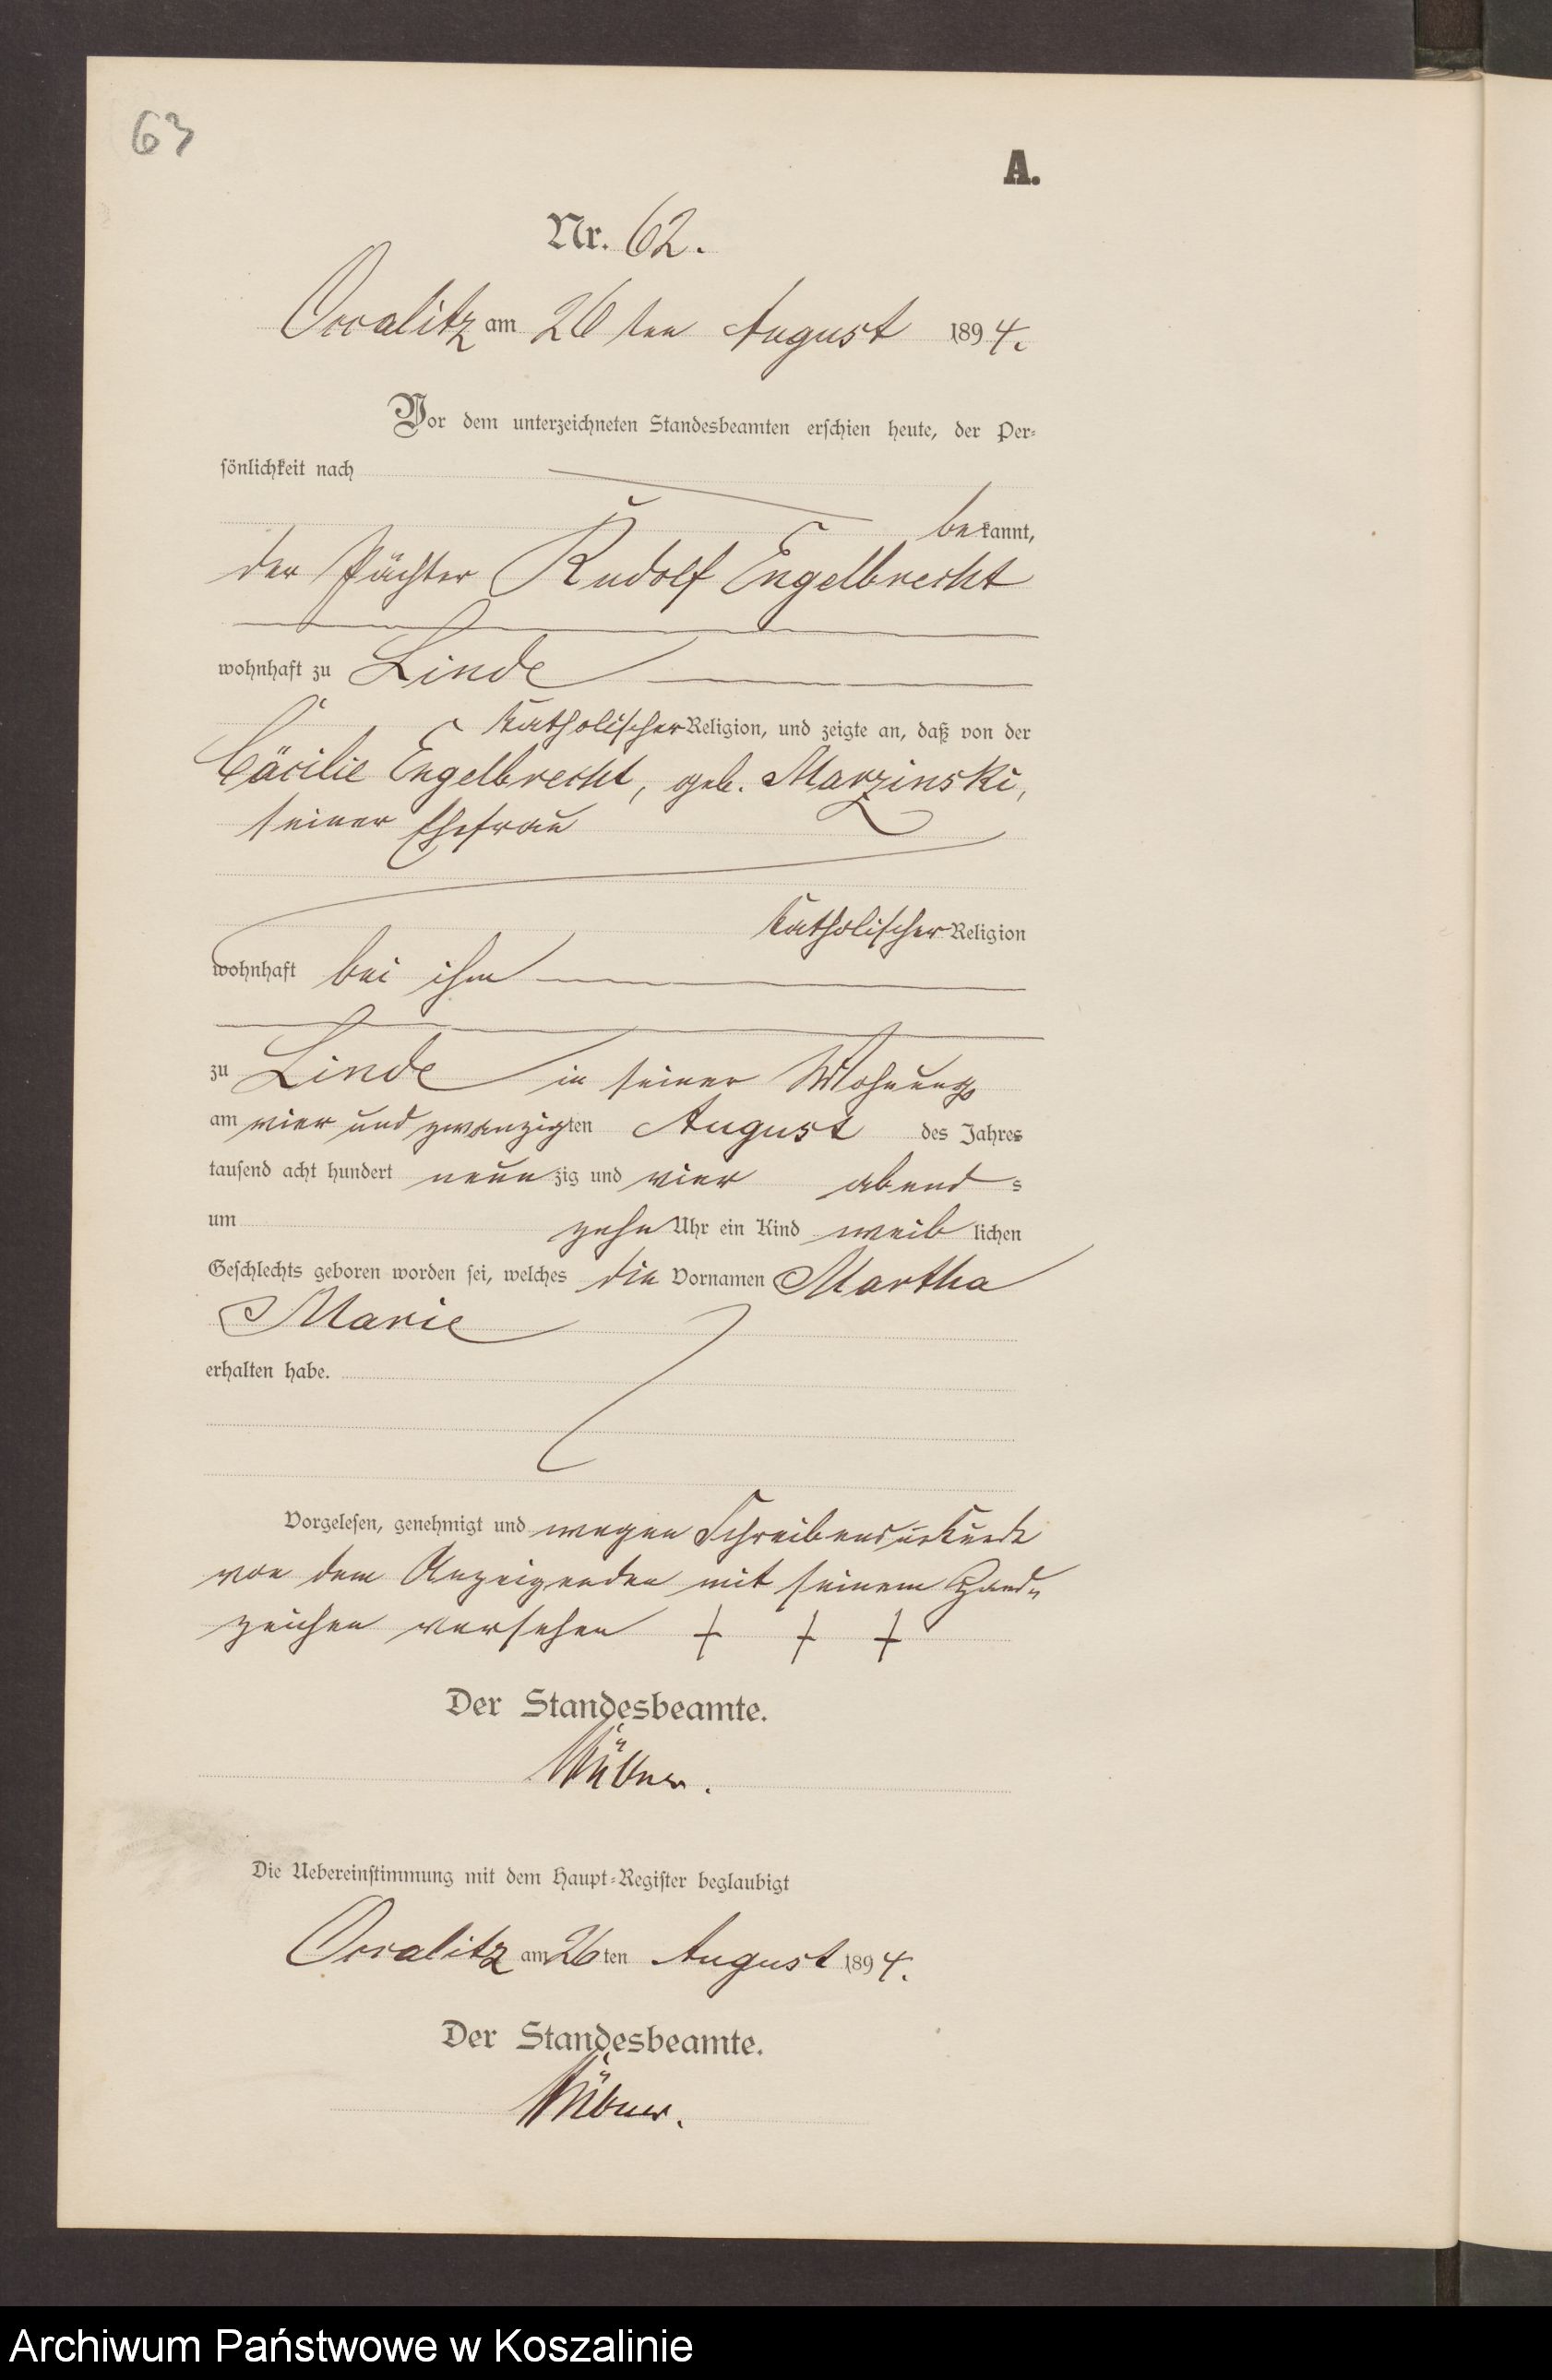 63
A.
Nr. 62.
am 26 ten August 1894.
Vor dem unterzeichneten Standesbeamten erschien heute, der Per-
sönlichkeit nach
bekannt,
der Pächter Rudolf Engelbrecht
wohnhaft zu Linde
katholischer Religion, und zeigte an, daß von der
Cäcilie Engelbrecht, geb. Marzinski,
seiner Ehefrau
katholischer Religion
wohnhaft bei ihm
zu Linde in seiner Wohnung
am vier und zwanzigten August des Jahres
tausend acht hundert neunzig und vier abends
um zehn Uhr ein Kind weiblichen
Geschlechts geboren worden sei, welches die Vornamen Martha
Marie
erhalten habe.
Vorgelesen, genehmigt und wegen
von dem Anzeigenden mit seinem Hand-
zeichen versehen + + +
Der Standesbeamte.
Die Uebereinstimmung mit dem Haupt-Register beglaubigt
am 26ten August 1894.
Der Standesbeamte.
Archiwum Państwowe w Koszalinie